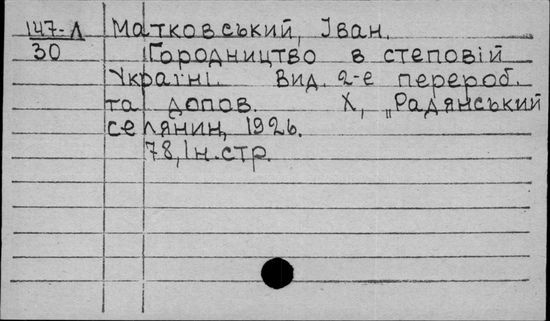 147-Л Матковський, Іван.
30 Городництво в степовій
Україні. Вид. 2-е перероб.
та допов. Х, „Радянський
селянин, 1926.
78, 1 н. стр.